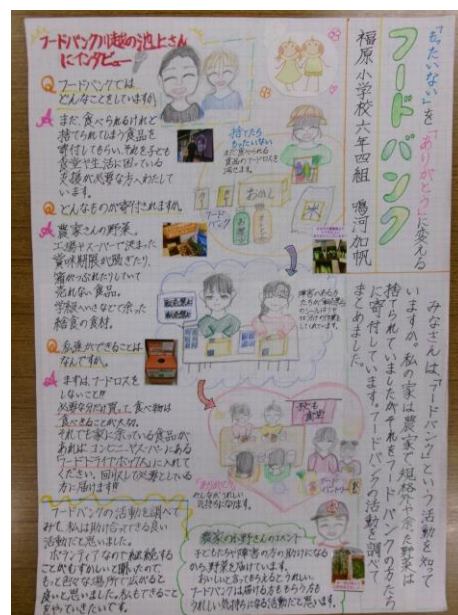 「もったいない」を「ありがとう」に変える
フードバンク
福原小学校六年四組 鳴河加帆
みなさんは、「フードバンク」という活動を知って
いますか。私の家は農家で規格外や余た野菜は
捨てられていましたがそれをフードバンクの方たち
に寄付しています。フードバンクの活動を調べて
まとめました。
フードバンク川越の池上さん
にインタビュー
Q フードバンクでは
どんなことをしていますか。
A まだ、食べられるけれど
捨てられてしまう食品を
寄付してもらい、それを子ども
食堂や生活に困っている
支援が必要な方へわたして
います。
Q どんなものが寄付されますか。
A 農家さんの野菜。
工場やスーパーで決まった
賞味期限が過ぎたり、
箱がつぶれたりしていて
売れない食品。
学級へいさなどで余った
給食の食材。
Q 私達ができることは
なんですか。
A まずは、フードロスを
しないこと!!
必要な分だけ買って、食べ物は
食べきることが大切。
それでも家に余っている食品が
あれば、コンビニやスーパーにある
「フードドライブボックス」に入れて
ください。回収して必要としている
方に届けます!!
捨てたら
もったいない
まだ食べられる
食品のフードロスを
減せます。
おかし
フード
バンク
障害のある方
たちが
のシールはりや
仕分け作業を
してくれています。
子ども
食堂
フード
パントリー
「ありがとう」
みんながうれしい
気持ちになります。
フードバンクの活動を調べて
みて、私は助け合ってできる良い
活動だと思いました。
ボランティアなので継続する
ことがむずかしいと聞いたので
もっと色々な場所で広がると
良いと思いました。私もできること
をやっていきたいです。
農家のか野さんのコメント
子どもたちや障害の方の助けになる
から、野菜を届けています。
おいしいと言ってもらえるとうれしい。
フードバンクは届ける方ももらう方も
うれしい気持ちになる活動だと思います。